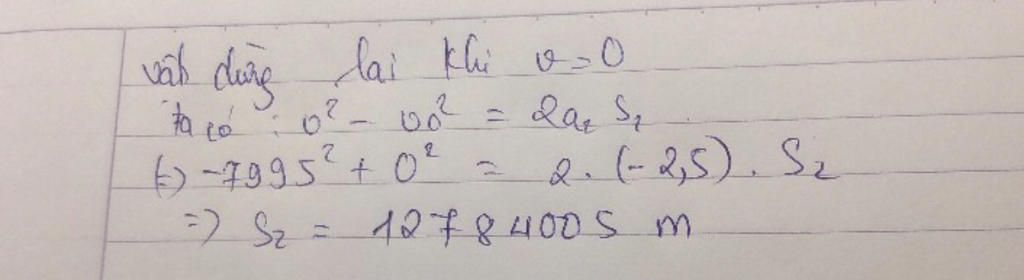 vật dừng lại khi v = 0
ta có : v² - v₀² = 2a₂ S₂
(=) -7995² + 0² = 2. (-2,5) . S₂
=) S₂ = 12784005 m